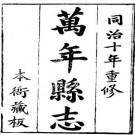 同治十年重修
萬年縣志
本衙藏板